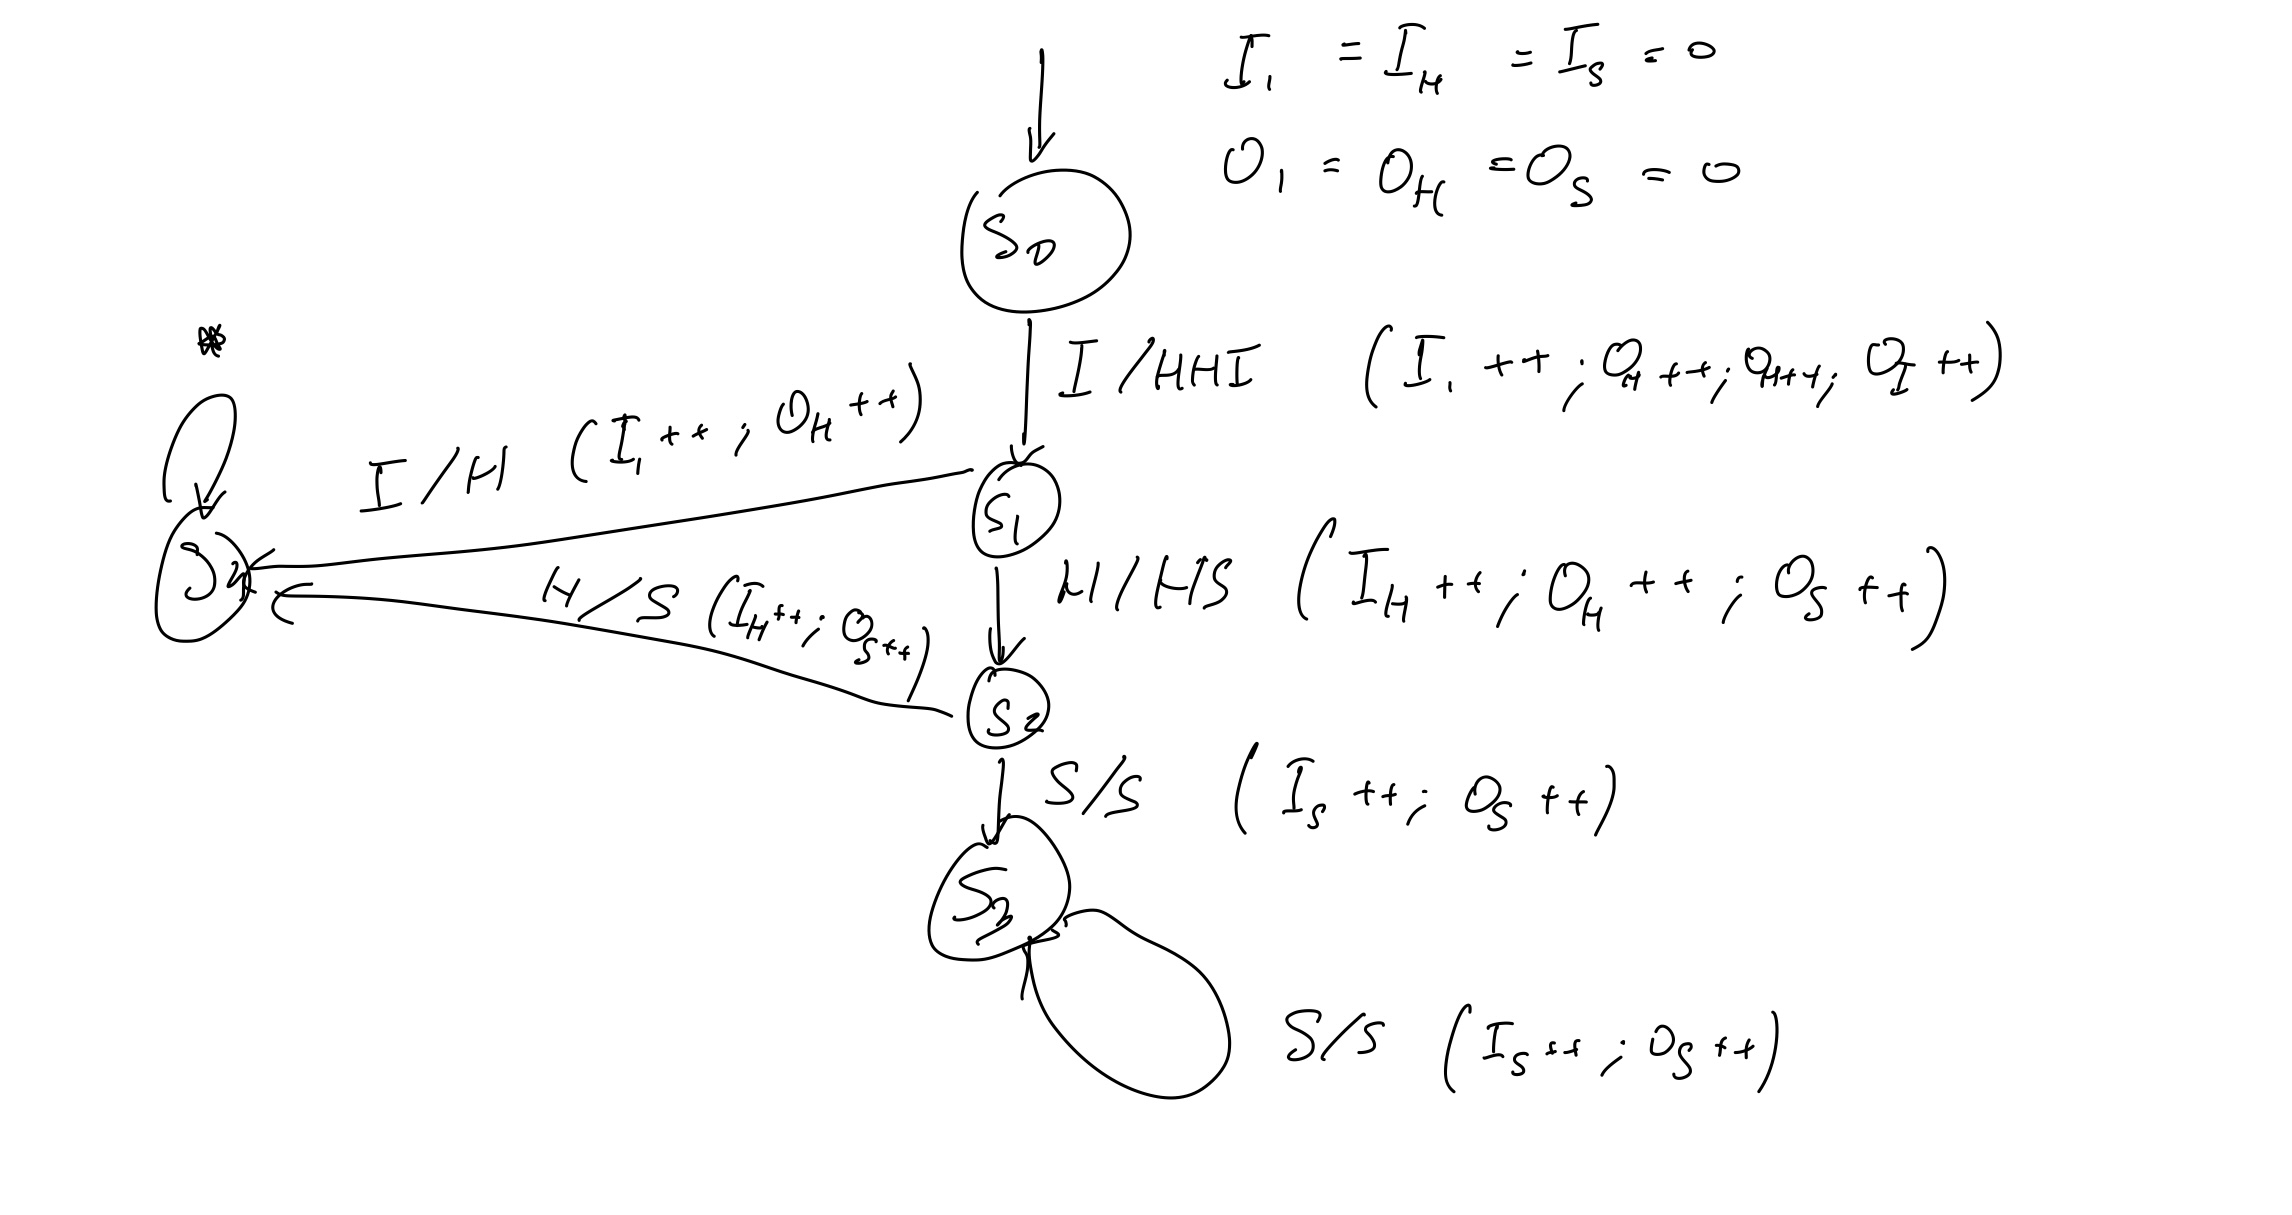 I₁ = I_H = I_S = 0
O₁ = O_H = O_S = 0
S₀
I/HHI (I₁++; O_H++; O_H++; O_I++)
*
I/H (I₁++; O_H++)
S₁
S₄
H/S (I_H++; O_S++)
H/HS (I_H++; O_H++; O_S++)
S₂
S/S (I_S++; O_S++)
S₃
S/S (I_S++; O_S++)